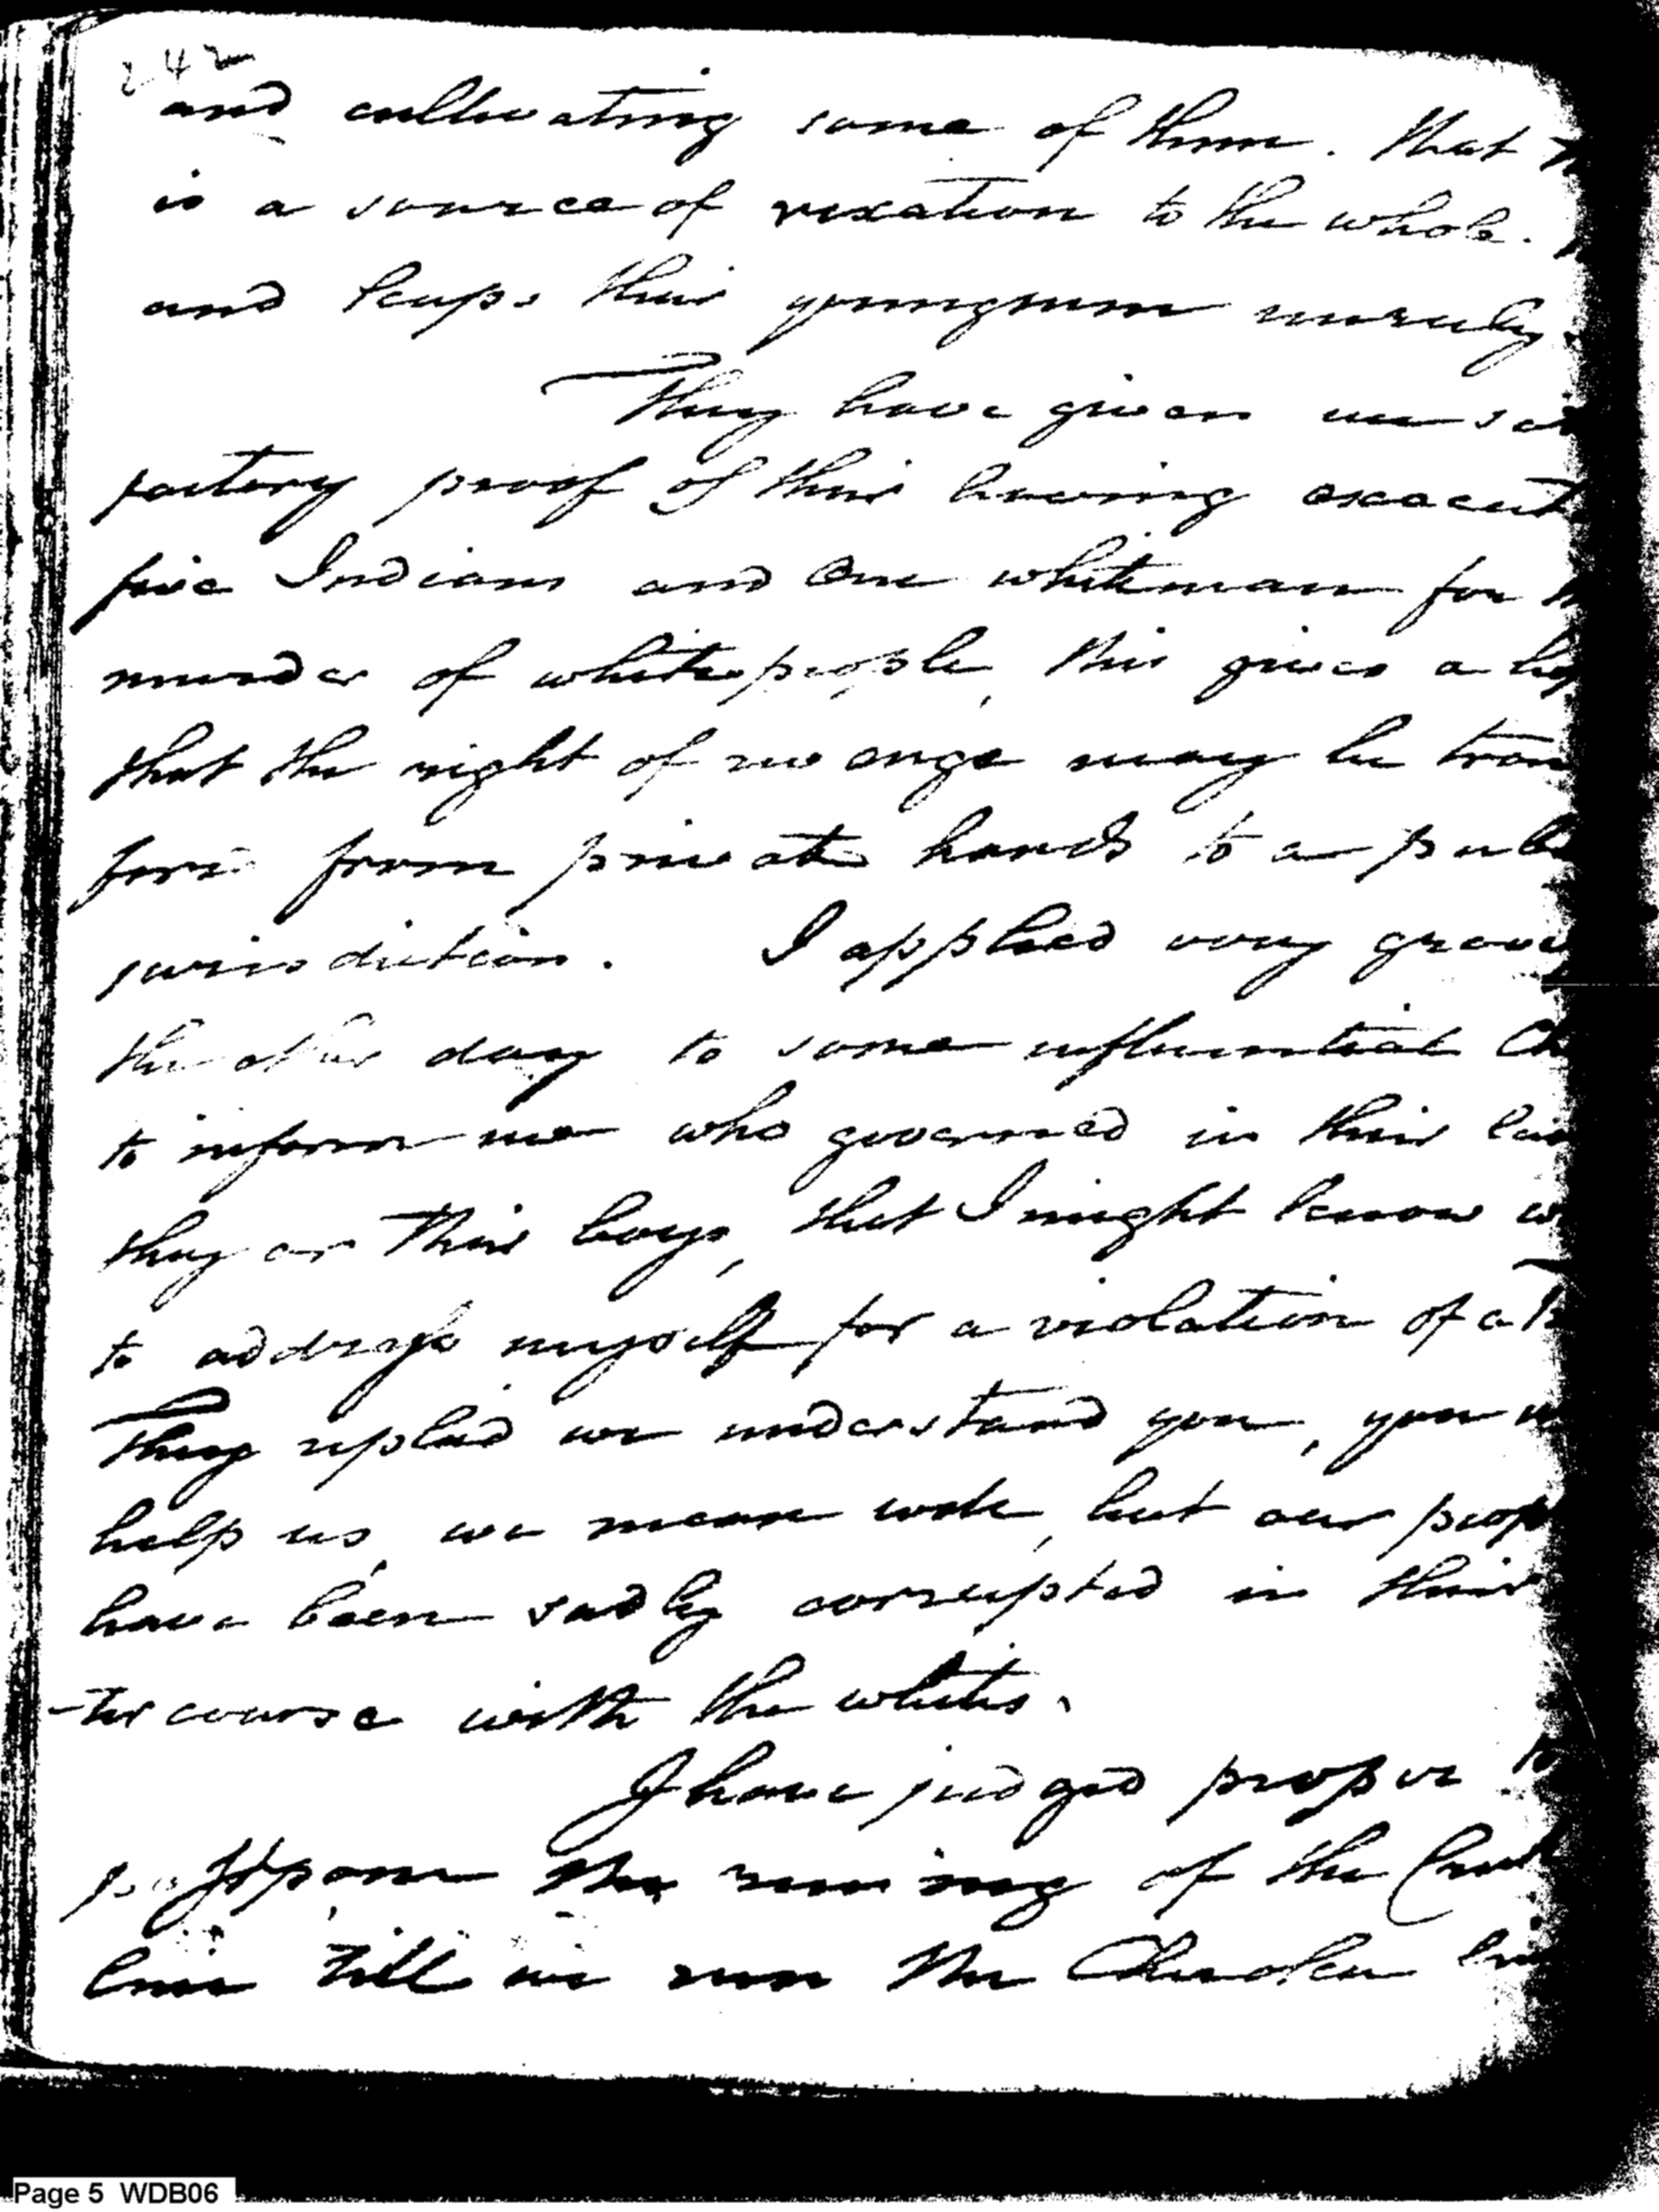 242
and cultivating some of them. that
is a source of vexation to the whole.
and keeps their youngmen unruly.
They have given me
factory proof of their having
five Indians and One whiteman for
murder of white people, this gives a
that the right of revenge may be
from private hands to a
jurisdiction. I applied very
the other day to some influential
to inform me who governed in their
they or their boys, that I might know
to address myself for a violation of a
They replied we understand you, you
help us, we mean well, but our
have been sadly corrupted in their
-tercourse with the whites.
I have judged proper to
postpone the runing of the
line till we run the Cherokee
Page 5 WDB06